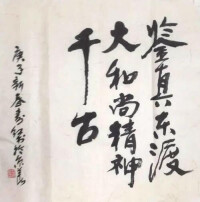 鉴真东渡
大和尚精神
千古
庚子新春